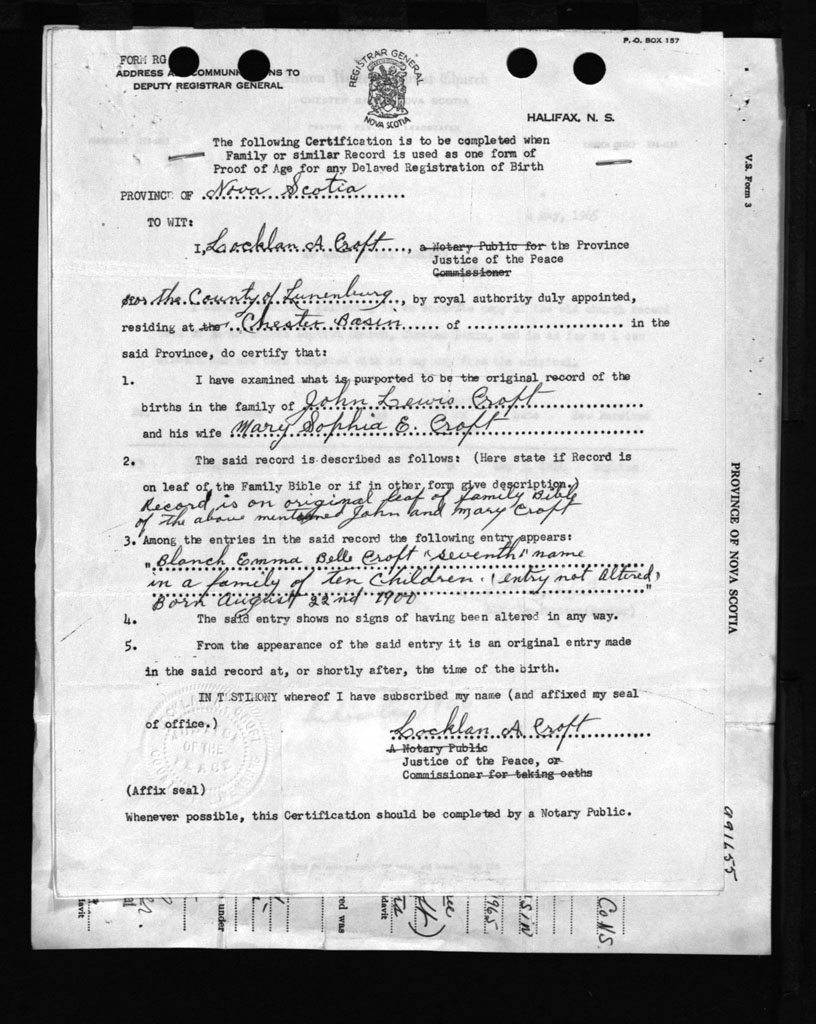 P. O. BOX 157
FORM RG
ADDRESS COMMUN NS TO
DEPUTY REGISTRAR GENERAL
REGISTRAR GENERAL
NOVA SCOTIA
HALIFAX, N. S.
The following Certification is to be completed when
Family or similar Record is used as one form of
Proof of Age for any Delayed Registration of Birth
PROVINCE OF Nova Scotia
TO WIT:
I, Locklan A Croft, a Notary Public for the Province
Justice of the Peace
Commissioner
for the County of Lunenburg, by royal authority duly appointed,
residing at the Chester Basin of in the
said Province, do certify that:
1. I have examined what is purported to be the original record of the
births in the family of John Lewis Croft
and his wife Mary Sophia E. Croft
2. The said record is described as follows: (Here state if Record is
on leaf of the Family Bible or if in other form give description.)
Record is on original leaf of family Bible
of the above mentioned John and Mary Croft
3. Among the entries in the said record the following entry appears:
"Blanch Emma Belle Croft "seventh" name
in a family of ten Children. (entry not Altered)
Born August 22nd 1900"
4. The said entry shows no signs of having been altered in any way.
5. From the appearance of the said entry it is an original entry made
in the said record at, or shortly after, the time of the birth.
IN TESTIMONY whereof I have subscribed my name (and affixed my seal
of office.)
Locklan A Croft
A Notary Public
Justice of the Peace, or
Commissioner for taking oaths
OF THE
PEACE
(Affix seal)
Whenever possible, this Certification should be completed by a Notary Public.
V.S. Form 3
PROVINCE OF NOVA SCOTIA
991655
Co N.S.
SIN
1965
davit
red was
under
davit